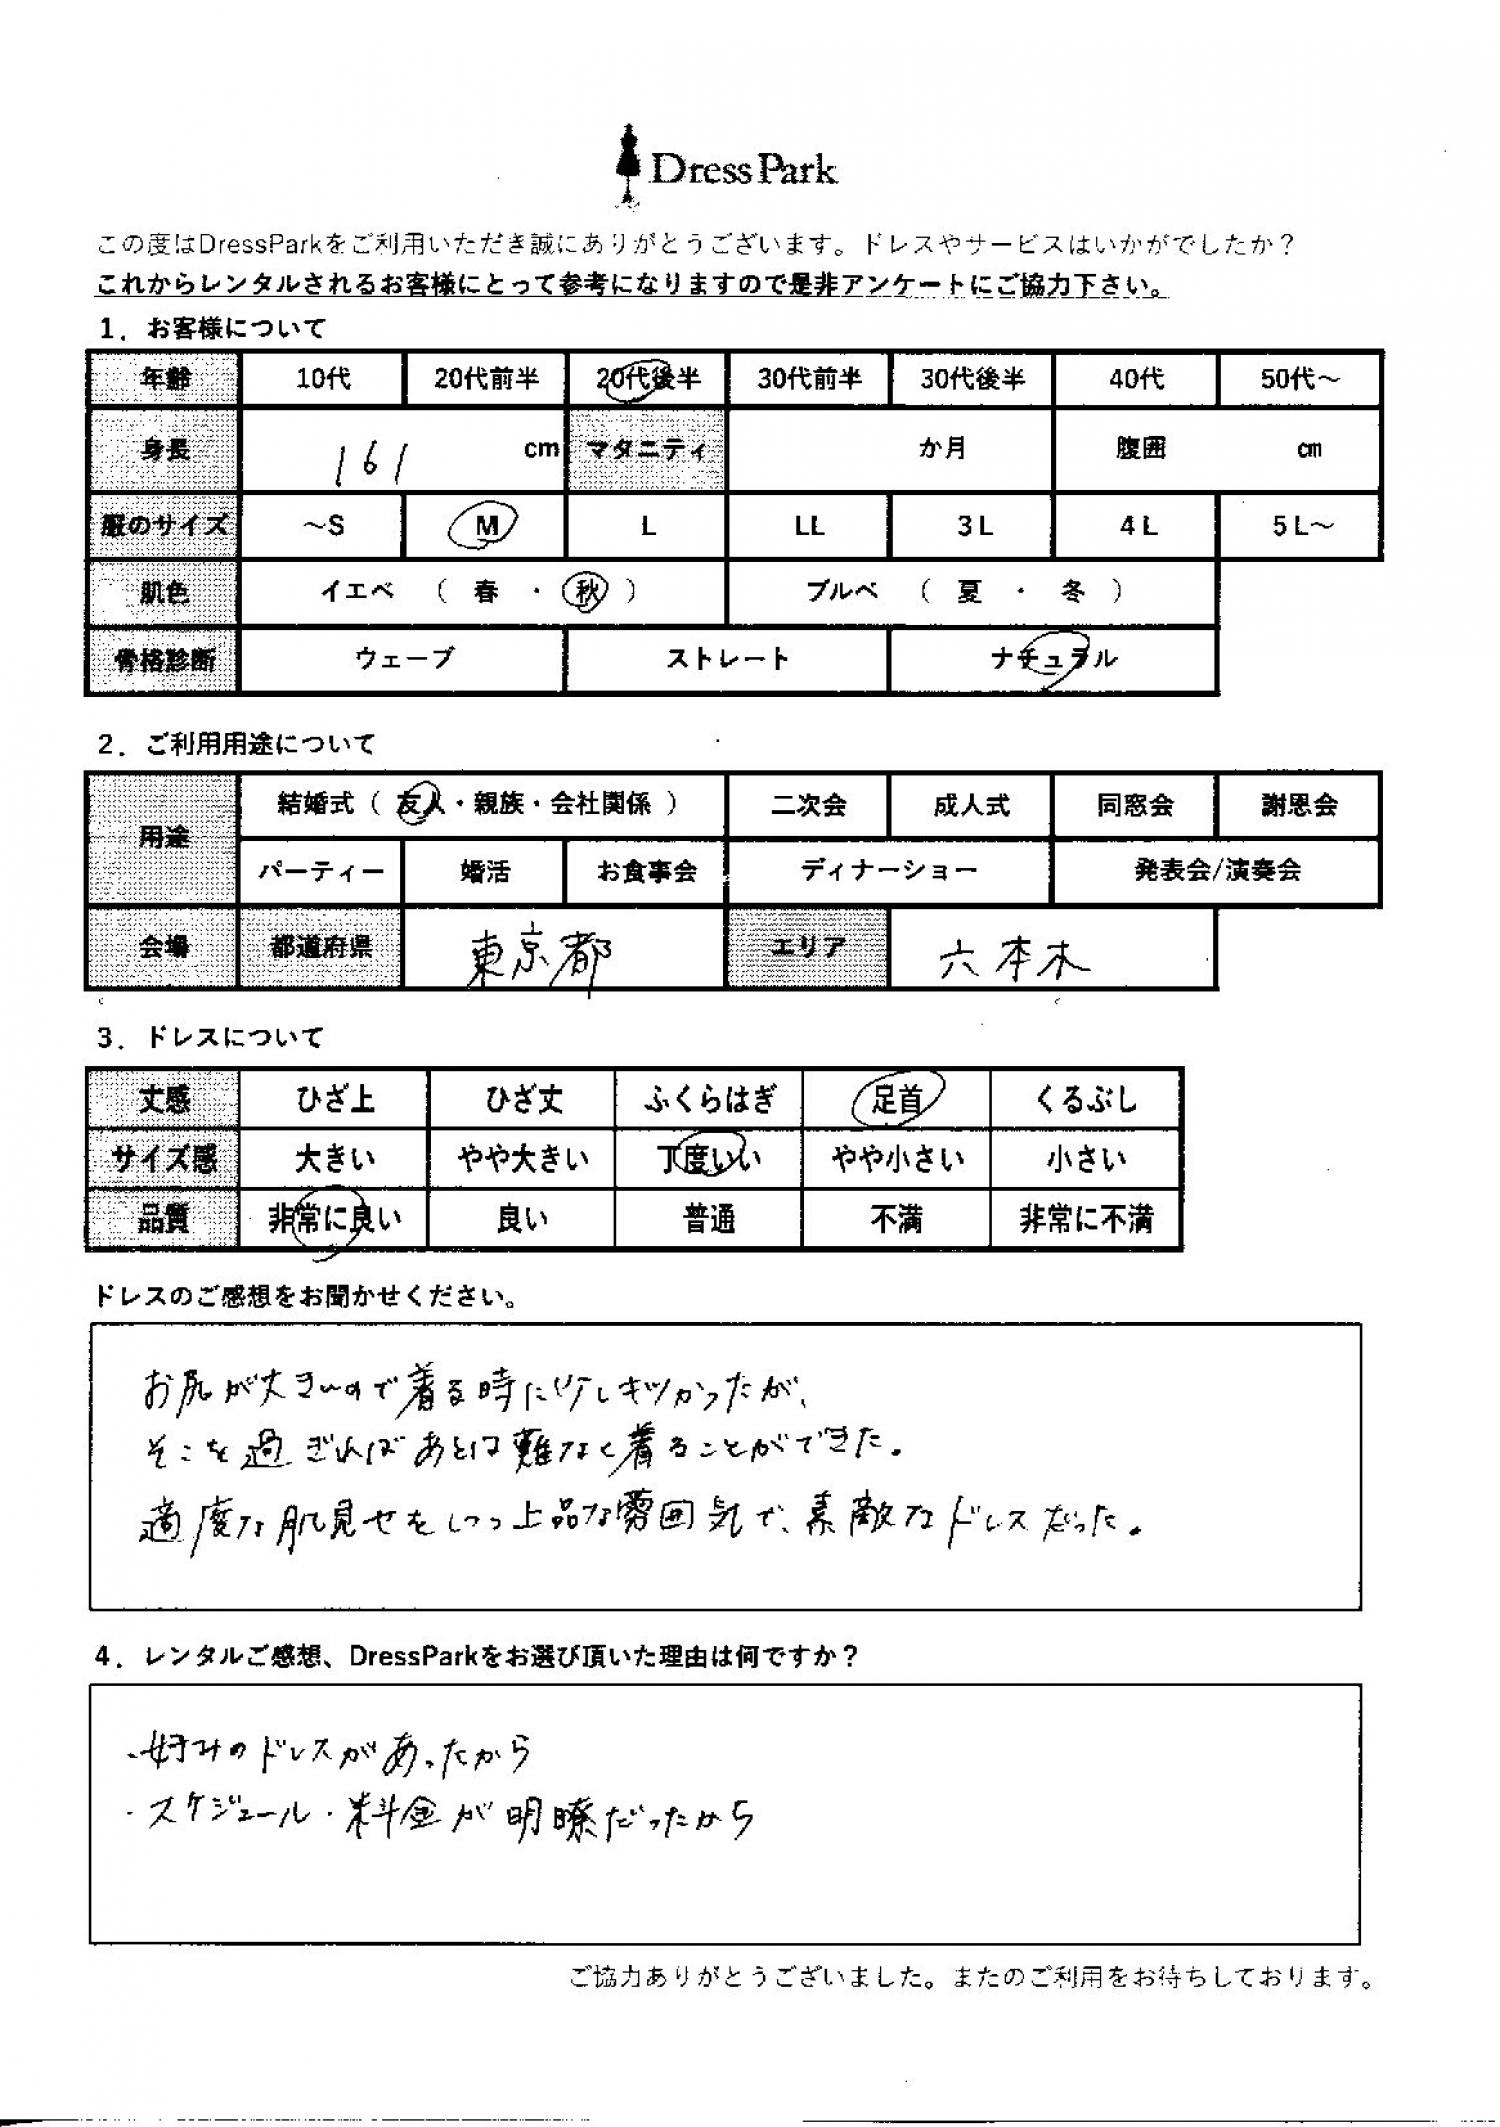 DressPark
この度はDressParkをご利用いただき誠にありがとうございます。ドレスやサービスはいかがでしたか？
これからレンタルされるお客様にとって参考になりますので是非アンケートにご協力下さい。
1．お客様について
年齢 10代 20代前半 20代後半 30代前半 30代後半 40代 50代～
身長 161 cm マタニティ か月 腹囲 cm
服のサイズ ～S M L LL 3L 4L 5L～
肌色 イエベ （ 春 ・ 秋 ） ブルベ （ 夏 ・ 冬 ）
骨格診断 ウェーブ ストレート ナチュラル
2．ご利用用途について
用途 結婚式（ 友人・親族・会社関係 ） 二次会 成人式 同窓会 謝恩会
パーティー 婚活 お食事会 ディナーショー 発表会/演奏会
会場 都道府県 東京都 エリア 六本木
3．ドレスについて
丈感 ひざ上 ひざ丈 ふくらはぎ 足首 くるぶし
サイズ感 大きい やや大きい 丁度いい やや小さい 小さい
品質 非常に良い 良い 普通 不満 非常に不満
ドレスのご感想をお聞かせください。
お尻が大きいので着る時に少しキツかったが、
そこを過ぎればあとは難なく着ることができた。
適度な肌見せをしつつ上品な雰囲気で、素敵なドレスだった。
4．レンタルご感想、DressParkをお選び頂いた理由は何ですか？
・好みのドレスがあったから
・スケジュール・料金が明瞭だったから
ご協力ありがとうございました。またのご利用をお待ちしております。